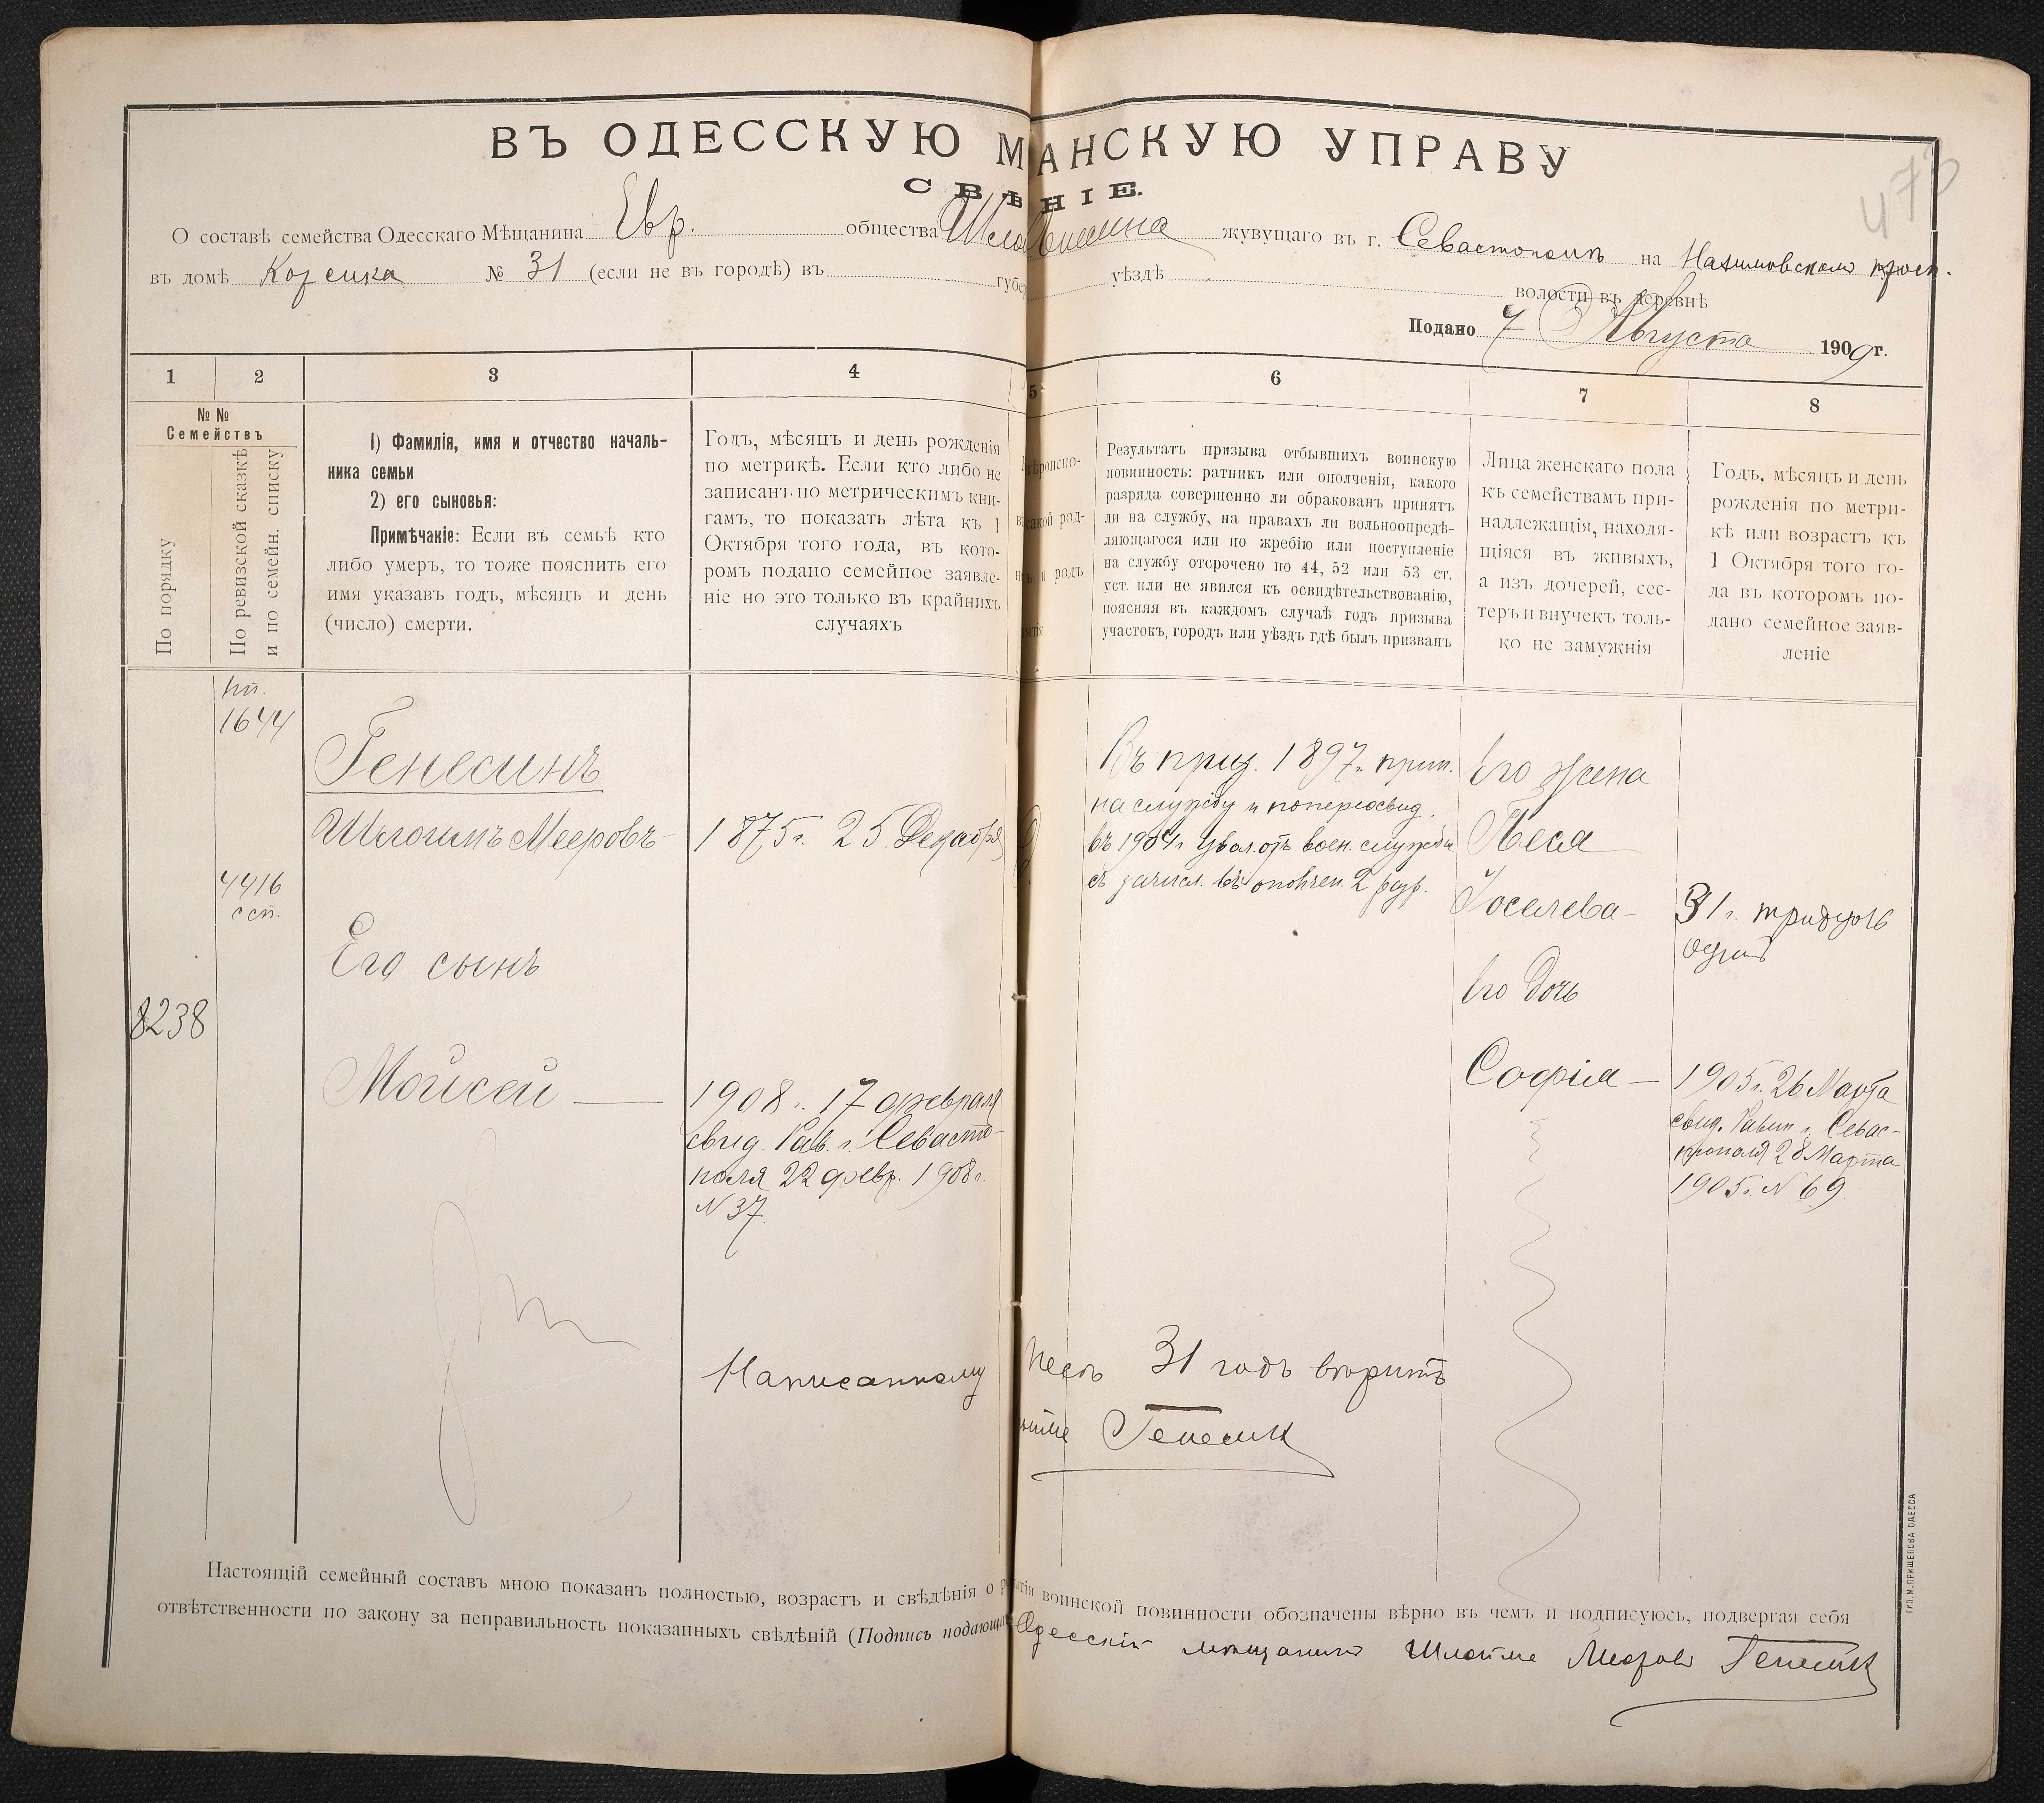 ВЪ ОДЕССКУЮ М АНСКУЮ УПРАВУ
СВѢ НІЕ.
473
О составѣ семейства Одесскаго Мѣщанина Евр. общества жувущаго въ г. Севастополѣ на Нахимовскомъ просп.
въ домѣ № 31 (если не въ городѣ) въ губер уѣздѣ волости въ деревнѣ
Подано 7 Августа 1909 г.
1 2 3 4 5 6 7 8
№ №
Семействъ
По порядку
По ревизской сказкѣ
и по семейн. списку
1) Фамилія, имя и отчество началь-
ника семьи
2) его сыновья:
Примѣчаніе: Если въ семьѣ кто
либо умеръ, то тоже пояснить его
имя указавъ годъ, мѣсяцъ и день
(число) смерти.
Годъ, мѣсяцъ и день рожденія
по метрикѣ. Если кто либо не
записанъ по метрическимъ кни-
гамъ, то показать лѣта къ 1
Октября того года, въ кото-
ромъ подано семейное заявле-
ніе но это только въ крайнихъ
случаяхъ
вѣроиспо-
какой род-
и родъ
Результатъ призыва отбывшихъ воинскую
повинность: ратникъ или ополченія, какого
разряда совершенно ли обракованъ принятъ
ли на службу, на правахъ ли вольноопредѣ-
ляющагося или по жребію или поступленіе
на службу отсрочено по 44, 52 или 53 ст.
уст. или не явился къ освидѣтельствованію,
поясняя въ каждомъ случаѣ годъ призыва
участокъ, городъ или уѣздъ гдѣ былъ призванъ
Лица женскаго пола
къ семействамъ при-
надлежащія, находя-
щіяся въ живыхъ,
а изъ дочерей, сес-
теръ и внучекъ толь-
ко не замужнія
Годъ, мѣсяцъ и день
рожденія по метри-
кѣ или возрастъ къ
1 Октября того го-
да въ которомъ по-
дано семейное заяв-
леніе
1644
4416
8238
Генесинъ
Шлоимъ Мееровъ-
Его сынъ
Мойсей —
1875 г. 25 Декабря
1908 г. 17 февраля
свид. Рав. г. Севасто-
поля 22 февр. 1908 г.
N 37.
Въ приз. 1897 г. прин.
на службу и по переосвид.
въ 1904 г. увол. отъ воен. службы
съ зачисл. въ ополчен. 2 разр.
Его жена
Песя
Іоселева -
Его дочь
Софія —
31 г. тридцать
одинъ
1905 г. 26 Марта
свид. Равин. г. Севас-
тополя 28 Марта
1905 г. N 69.
Написанному 31 годъ вѣрить
Генесин
Настоящій семейный составъ мною показанъ полностью, возрастъ и свѣдѣнія о воинской повинности обозначены вѣрно въ чемъ и подписуюсь, подвергая себя
отвѣтственности по закону за неправильность показанныхъ свѣдѣній (Подпись подающ Одесскій мѣщанинъ Шлойме Меэровъ Генесин
ТИП. М. ПРИЩЕПОВА ОДЕССА